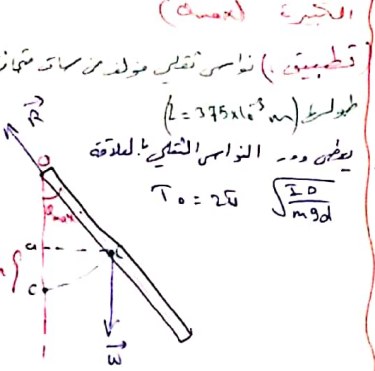 الكبيرة (θmax)
(تطبيق.) نواس ثقلي مؤلف من ساق متجا
طولها (L = 375x10⁻³ m)
يعطى دور النواس الثقلي بالعلاقة
T₀ = 2π √(I₀/mgd)
R
O
θmax
a
c
h
c
W